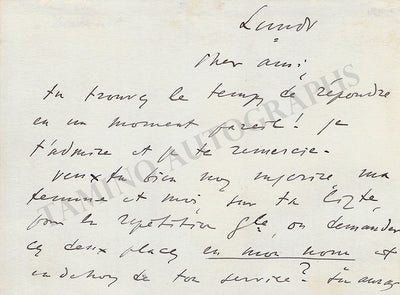 Lundi
Cher ami,
tu trouves le temps de répondre
en un moment pareil! je
t'admire et je te remercie.
veux tu bien nous inscrire ma
femme et moi sur ta liste,
pour la répétition gle, ou demander
ces deux places en mon nom et
en dehors de ton service?
TAMINO AUTOGRAPHS